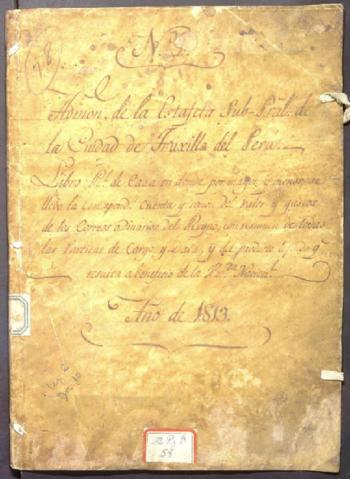 Nº 5.
Admon. de la Estafeta Sub-Pral. de
la Ciudad de Truxillo del Peru.
Libro Rl. de Caxa en donde por mayor y menor se
lleba la correspond.e cuenta y razon del valor y gastos
de los Correos ordinarios del Reyno, con resumen de todas
las Partidas de Cargo y data, y del producto liq.do q.e
resulta a beneficio de la Nacional.
Año de 1813.